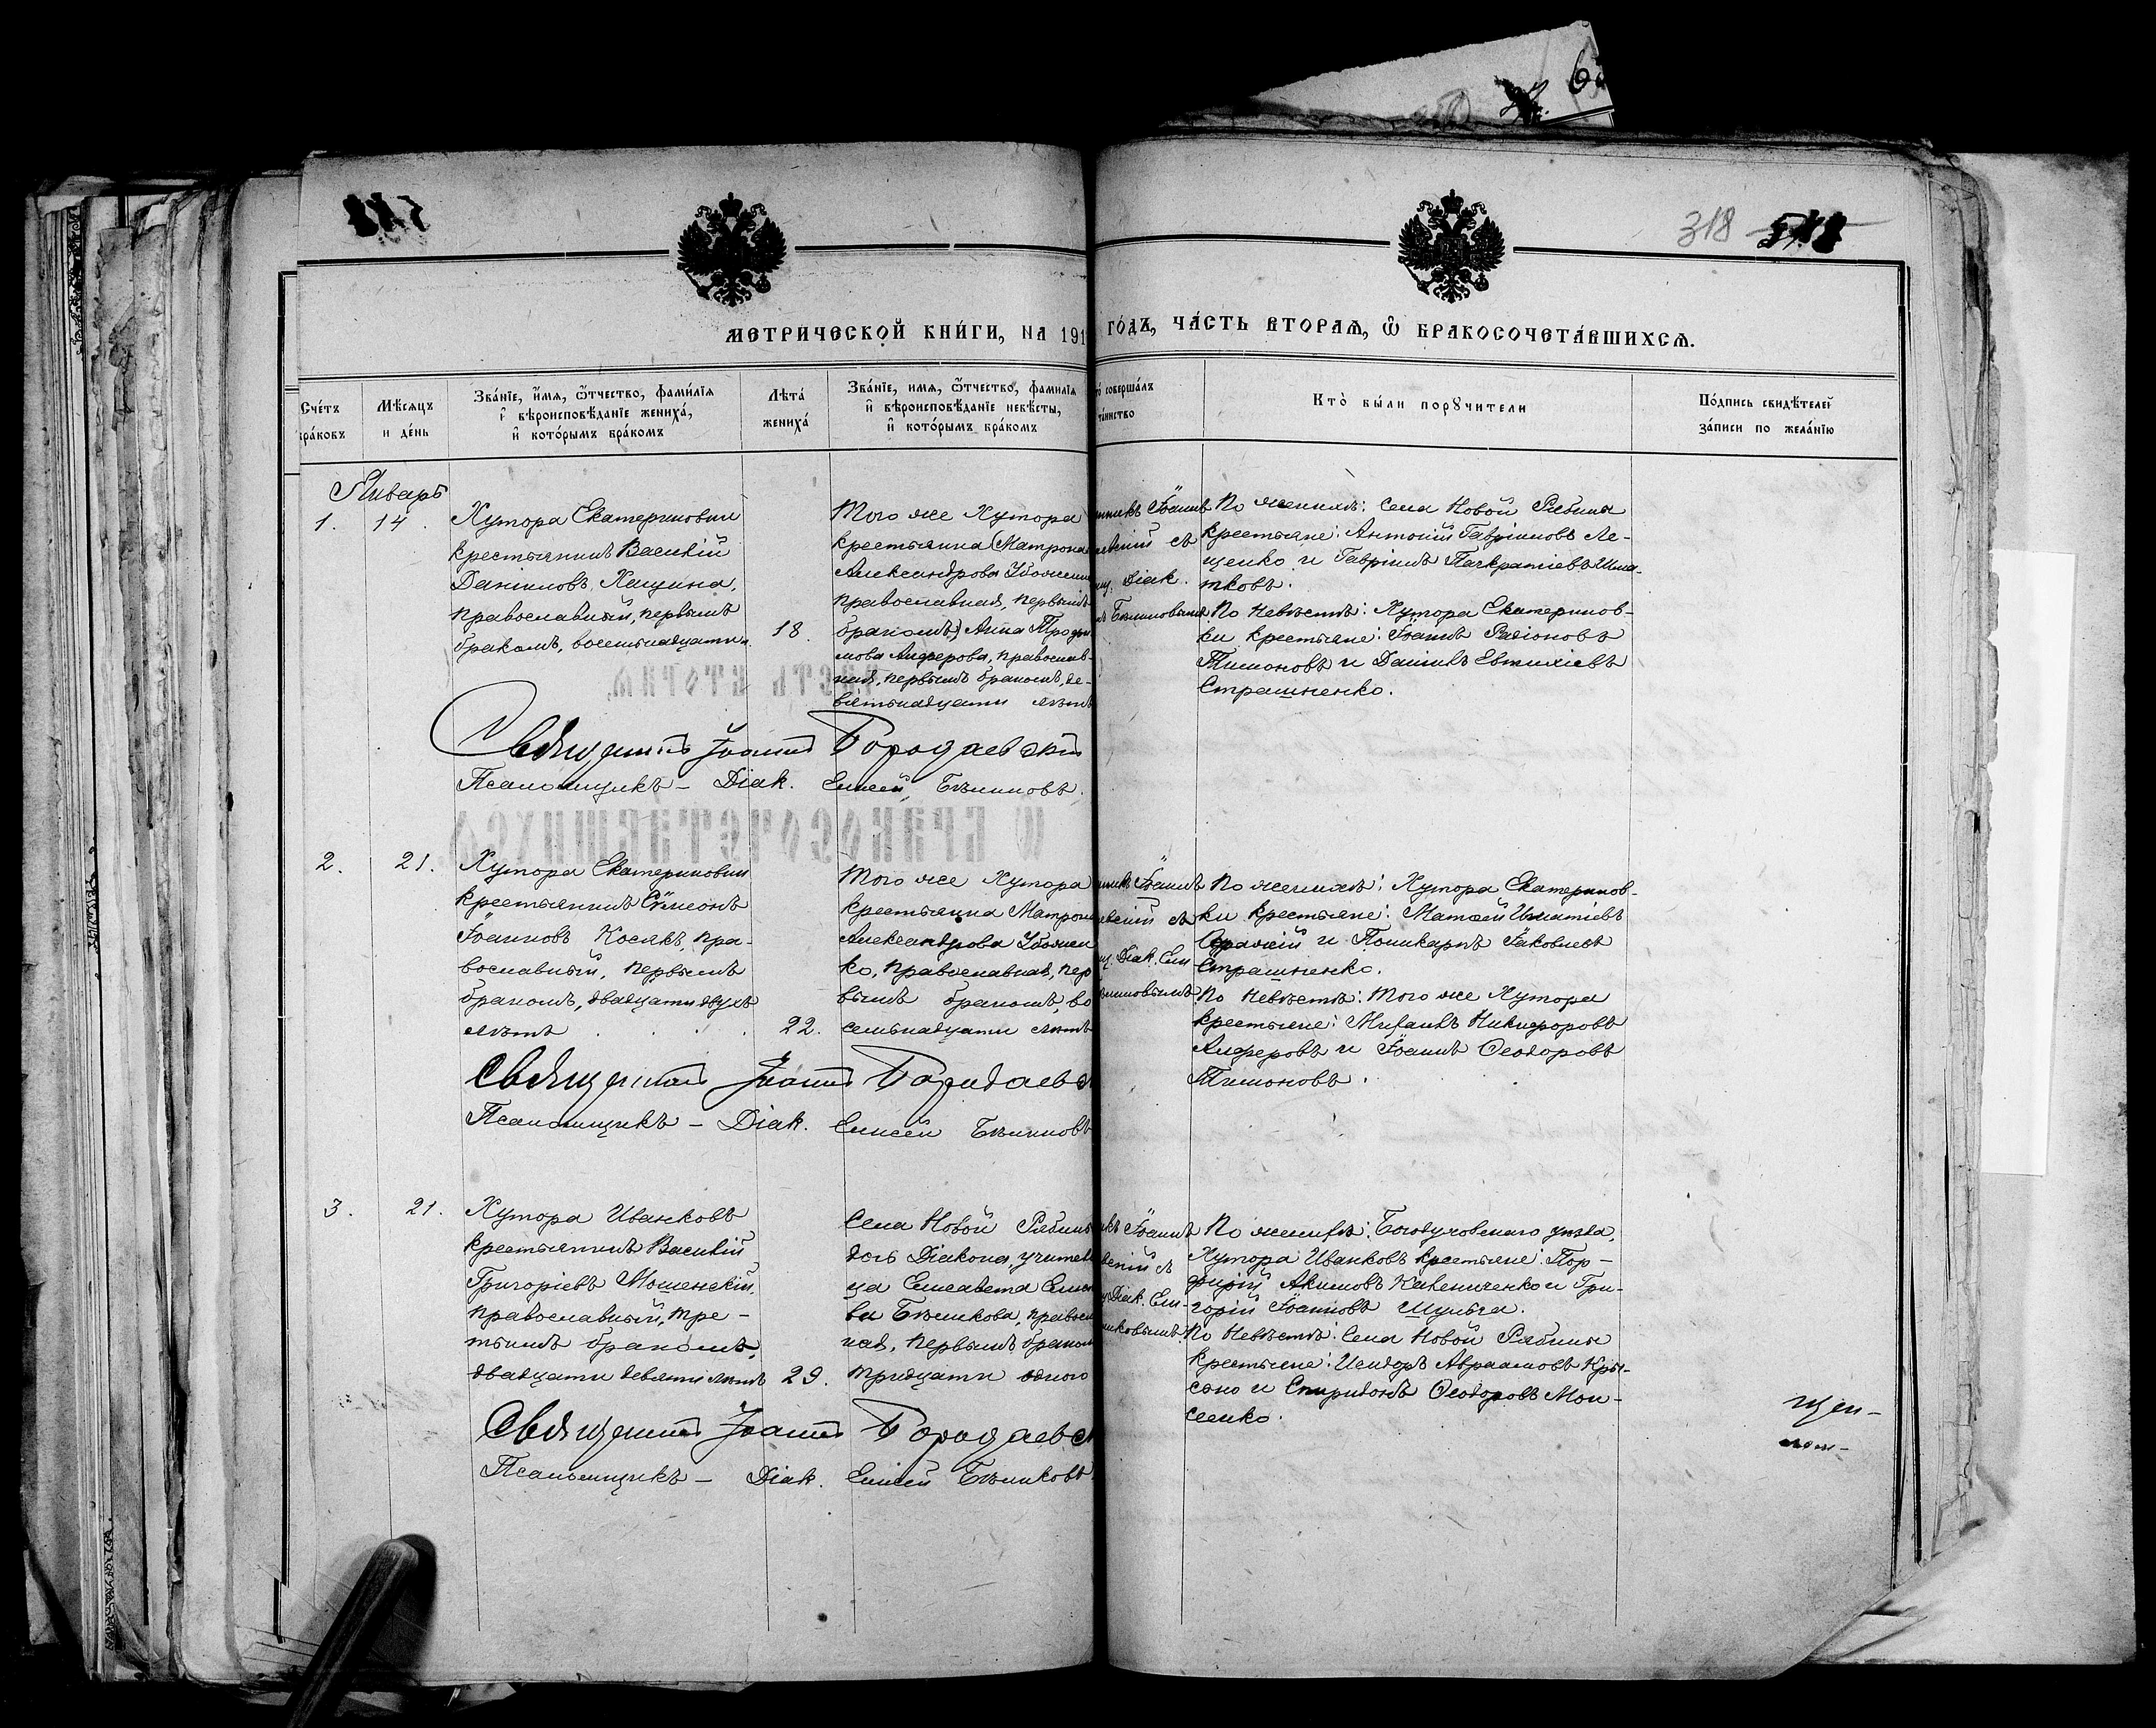 318
МЕТРИЧЕСКОЙ КНИ́ГИ, НА 191
ГО́ДЪ, ЧА́СТЬ ВТОРАѦ, Ѿ БРАКОСОЧЕТА́ВШИХСѦ.
Сче́тъ
бра́ковъ
Мѣ́сяцъ
и де́нь
Зва́нїе, и́мѧ, ѻ҆́тчество, фами́лїѧ
и҆ вѣроисповѣ́данїе жениха́,
и҆ кото́рымъ бра́комъ
Лѣ́та
жениха́
Зва́нїе, имѧ, ѻ҆́тчество, фамилїѧ
и҆ вѣроисповѣ́данїе невѣ́сты,
и҆ кото́рымъ бра́комъ
совершáлъ
таинство
Кто̀ бы́ли порꙋчители
По́дпись свидѣ́телей
за́писи по жела́нїю
Январь
1. 14.
Хутора Екатериновки
крестьянинъ Василій
Даніиловъ Хащина,
православный, первымъ
бракомъ, восемнадцати
18.
Того же Хутора
крестьянка (Матрона
Александрова Убоженко
православная, первымъ
бракомъ) Анна Трофи
мова Алферова, православ-
ная, первымъ бракомъ, де-
вятнадцати лѣтъ
Іоаннъ
съ
Діак.
Бѣликовымъ
По женихѣ: Села Новой Рябины
крестьяне: Антоній Гавріиловъ Ле-
щенко и Гавріилъ Панкратіевъ Шма-
тковъ.
По невѣстѣ: Хутора Екатеринов-
ки крестьяне: Іоаннъ Родіоновъ
Тимоновъ и Даніилъ Евтихіевъ
Страшненко.
Священникъ Іоаннъ Бородаевскій
Псаломщикъ - Діак. Елисей Бѣликовъ.
2. 21.
Хутора Екатериновки
крестьянинъ Сѵмеонъ
Іоанновъ Косякъ, пра-
вославный, первымъ
бракомъ, двадцати двухъ
лѣтъ
22.
Того же Хутора
крестьянка Матрона
Александрова Убожен
ко, православная, пер
вымъ бракомъ, во
семнадцати лѣтъ
Іоаннъ
съ
Діак. Ели
По женихѣ: Хутора Екатеринов-
ки крестьяне: Матѳей Игнатіевъ
и Поликарпъ Іаковлевъ
Страшненко.
По невѣстѣ: Того же Хутора
крестьяне: Михаилъ Никифоровъ
Алферовъ и Іоаннъ Ѳеодоровъ
Тимоновъ.
Священникъ Іоаннъ Бородаевс
Псаломщикъ - Діак. Елисей Бѣликовъ
3. 21.
Хутора Иванковъ
крестьянинъ Василій
Григоріевъ Мошенскій,
православный, тре-
тьимъ бракомъ,
двадцати девяти лѣтъ
29.
Села Новой Рябины
дочь Діакона, учительни
ца Елисавета Елисѣе
ва Бѣликова, правосл
ная, первымъ бракомъ
тридцати одного
Іоаннъ
съ
Діак. Ели-
По женихѣ: Богодуховскаго уѣзда,
Хутора Иванковъ крестьяне: Пор-
фирій Акимовъ Кавениченко и Гри-
горій Іоанновъ Шульга.
По невѣстѣ: Села Новой Рябины
крестьяне: Исидоръ Авраамовъ Кры-
сько и Спиридонъ Ѳеодоровъ Мои-
сеенко.
Священникъ Іоаннъ Бородаевс
Псаломщикъ - Діак. Елисей Бѣликовъ